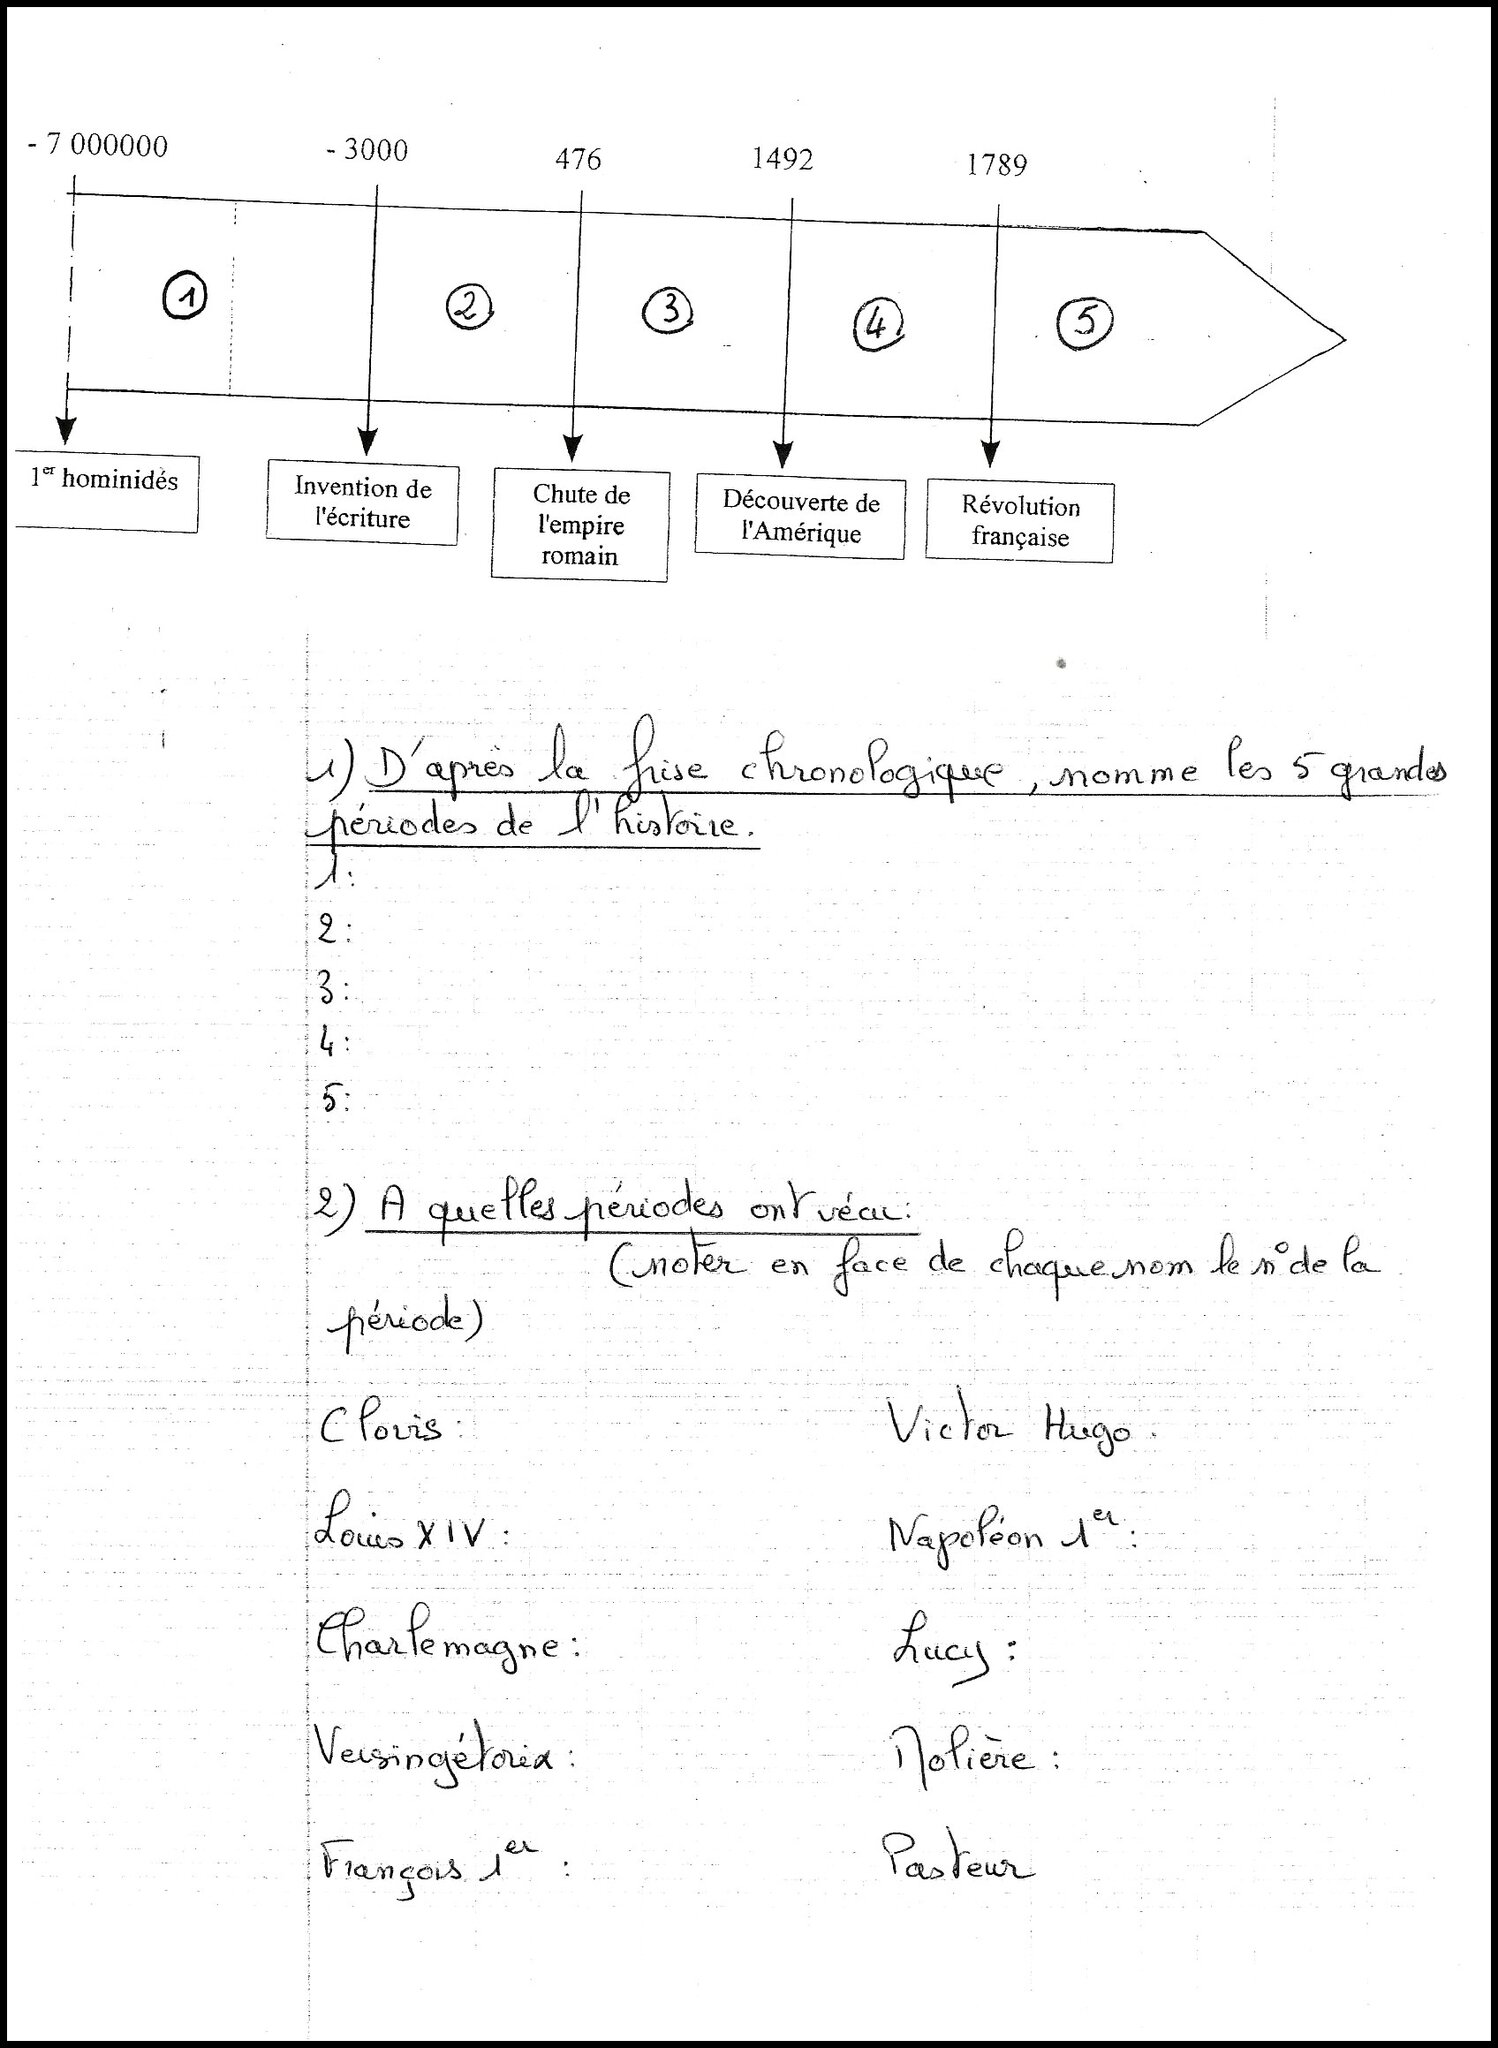 - 7 000000
- 3000
476
1492
1789
1
2
3
4
5
1er hominidés
Invention de
l'écriture
Chute de
l'empire
romain
Découverte de
l'Amérique
Révolution
française
1) D'après la frise chronologique, nomme les 5 grandes
périodes de l'histoire.
1:
2:
3:
4:
5:
2) A quelles périodes ont vécu:
(noter en face de chaque nom le n° de la
période)
Clovis:
Victor Hugo:
Louis XIV:
Napoléon 1er:
Charlemagne:
Lucy:
Versingétorix:
Molière:
François 1er:
Pasteur